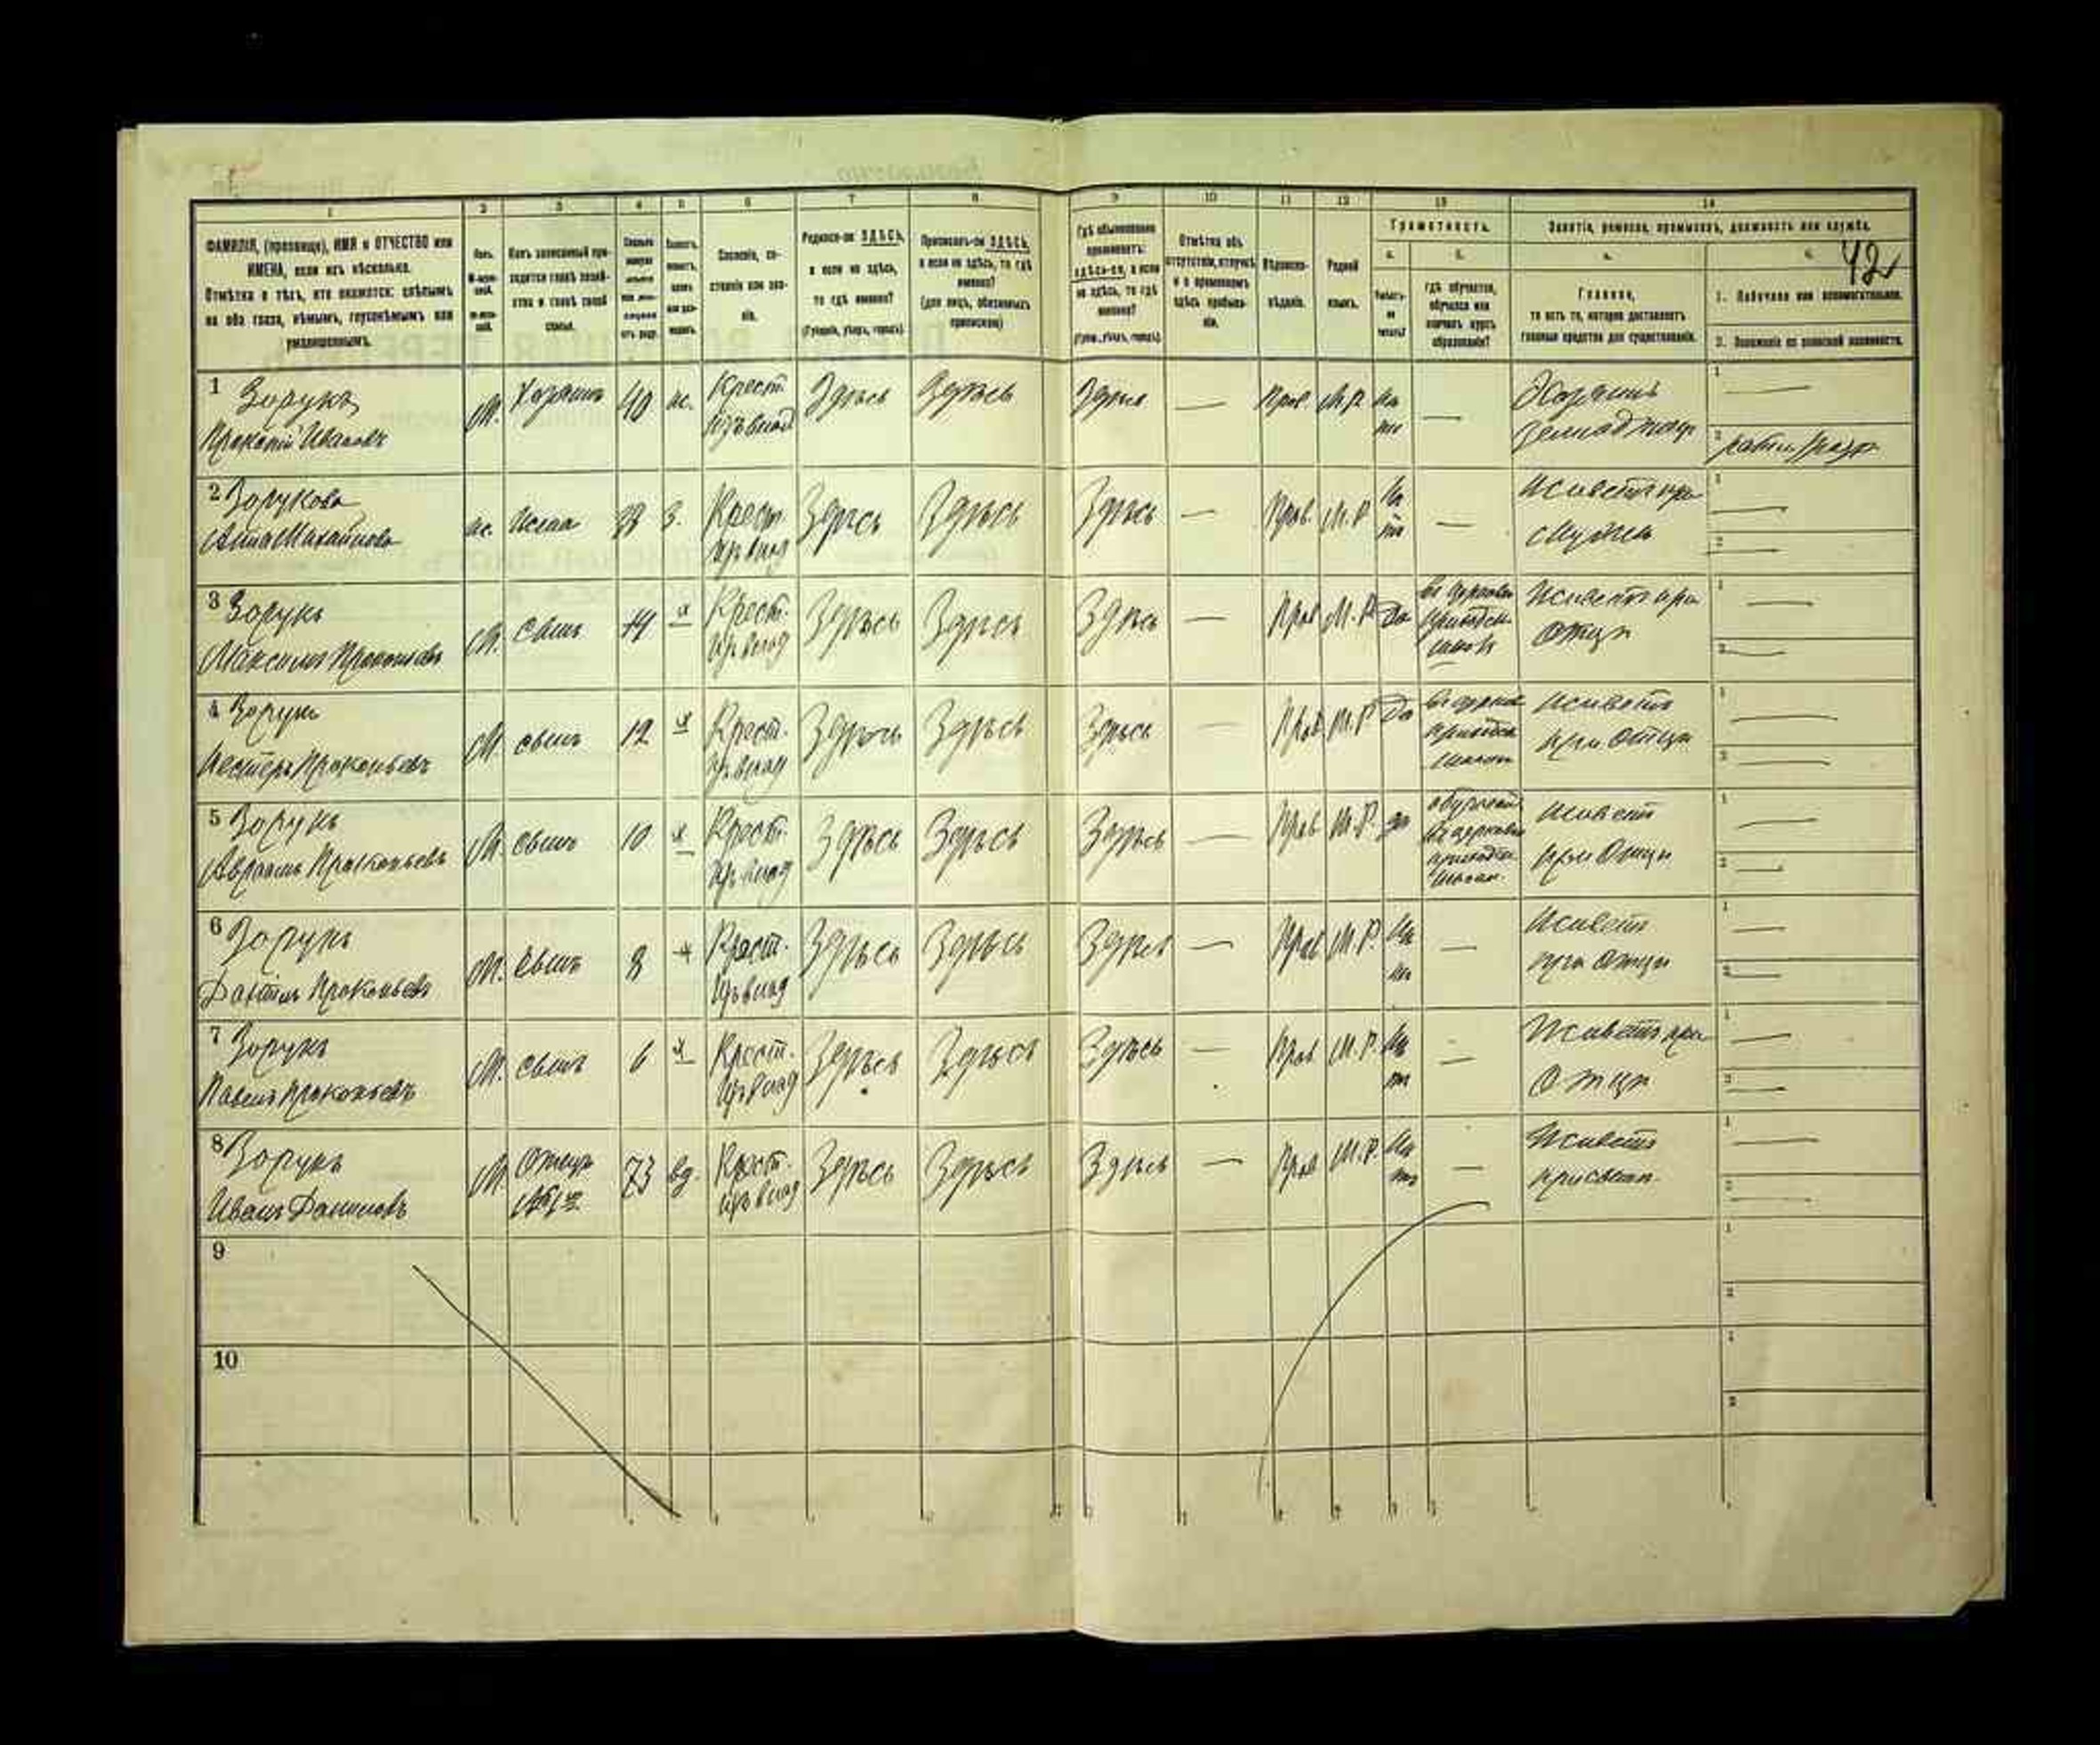 1 2 3 4 5 6 7 8 9 10 11 12 13 14
ФАМИЛІЯ, (прозвище), ИМЯ и ОТЧЕСТВО или
ИМЕНА, если ихъ нѣсколько.
Отмѣтка о тѣхъ, кто окажется: слѣпымъ
на оба глаза, нѣмымъ, глухонѣмымъ или
умалишеннымъ.
Полъ.
Какъ записанный при-
ходится главѣ хозяй-
ства и главѣ своей
семьи.
Сословіе, со-
стояніе или зва-
ніе.
Родился-ли ЗДѢСЬ,
а если не здѣсь,
то гдѣ именно?
(Губернія, уѣздъ, городъ).
Приписанъ-ли ЗДѢСЬ,
а если не здѣсь, то гдѣ
именно?
(для лицъ, обязанныхъ
припискою)
Гдѣ обыкновенно
проживаетъ:
здѣсь-ли, а если
не здѣсь, то гдѣ
именно?
(Губерн., уѣздъ, городъ).
Отмѣтка объ
отсутствіи, отлучкѣ
и о временномъ
здѣсь пребыва-
ніи.
Вѣроиспо-
вѣданіе.
Родной
языкъ.
Грамотность.
а. б.
Умѣетъ-
ли
читать?
гдѣ обучается,
обучался или
кончилъ курсъ
образованія?
Занятіе, ремесло, промыселъ, должность или служба.
42
Главное,
то есть то, которое доставляетъ
главныя средства для существованія.
1. Побочное или вспомогательное.
2. Положеніе по воинской повинности.
1 Зорукъ М. Хозяинъ 40 ж. Крест. Здѣсь Здѣсь Здѣсь — Прав. М.Р. Не — Хозяинъ 1 —
Прокопій Ивановъ изъ влад тъ 2
2 Зорукова ж. Жена 3. Крест. Здѣсь Здѣсь Здѣсь — Прав. М.Р. Не — Живетъ при 1 —
Анна Михайлова изъ влад тъ мужѣ 2 —
3 Зорукъ М. Сынъ 14 х Крест. Здѣсь Здѣсь Здѣсь — Прав М.Р Да Живетъ при 1 —
Максимъ Прокопьевъ изъ влад отцѣ 2 —
4 Зорукъ М. сынъ 12 х Крест. Здѣсь Здѣсь Здѣсь — Прав М.Р Да Живетъ 1 —
Нестеръ Прокопьевъ изъ влад при отцѣ 2 —
5 Зорукъ М. сынъ 10 х Крест. Здѣсь Здѣсь Здѣсь — Прав М.Р. да Живетъ 1 —
Авраамъ Прокопьевъ изъ влад при отцѣ 2 —
6 Зорукъ М. Сынъ 8 х Крест. Здѣсь Здѣсь Здѣсь — Прав М.Р. Не — Живетъ 1 —
Прокопьевъ изъ влад тъ при отцѣ 2 —
7 Зорукъ М. Сынъ 6 х Крест. Здѣсь Здѣсь Здѣсь — Прав М.Р. Не — Живетъ при 1 —
Павелъ Прокопьевъ изъ влад тъ отцѣ 2 —
8 Зорукъ М. Отецъ 73 вд. Крест. Здѣсь Здѣсь Здѣсь — Прав М.Р. Не — Живетъ 1 —
Иванъ Даниловъ изъ влад тъ при сынѣ. 2 —
9 1
2
10 1
2